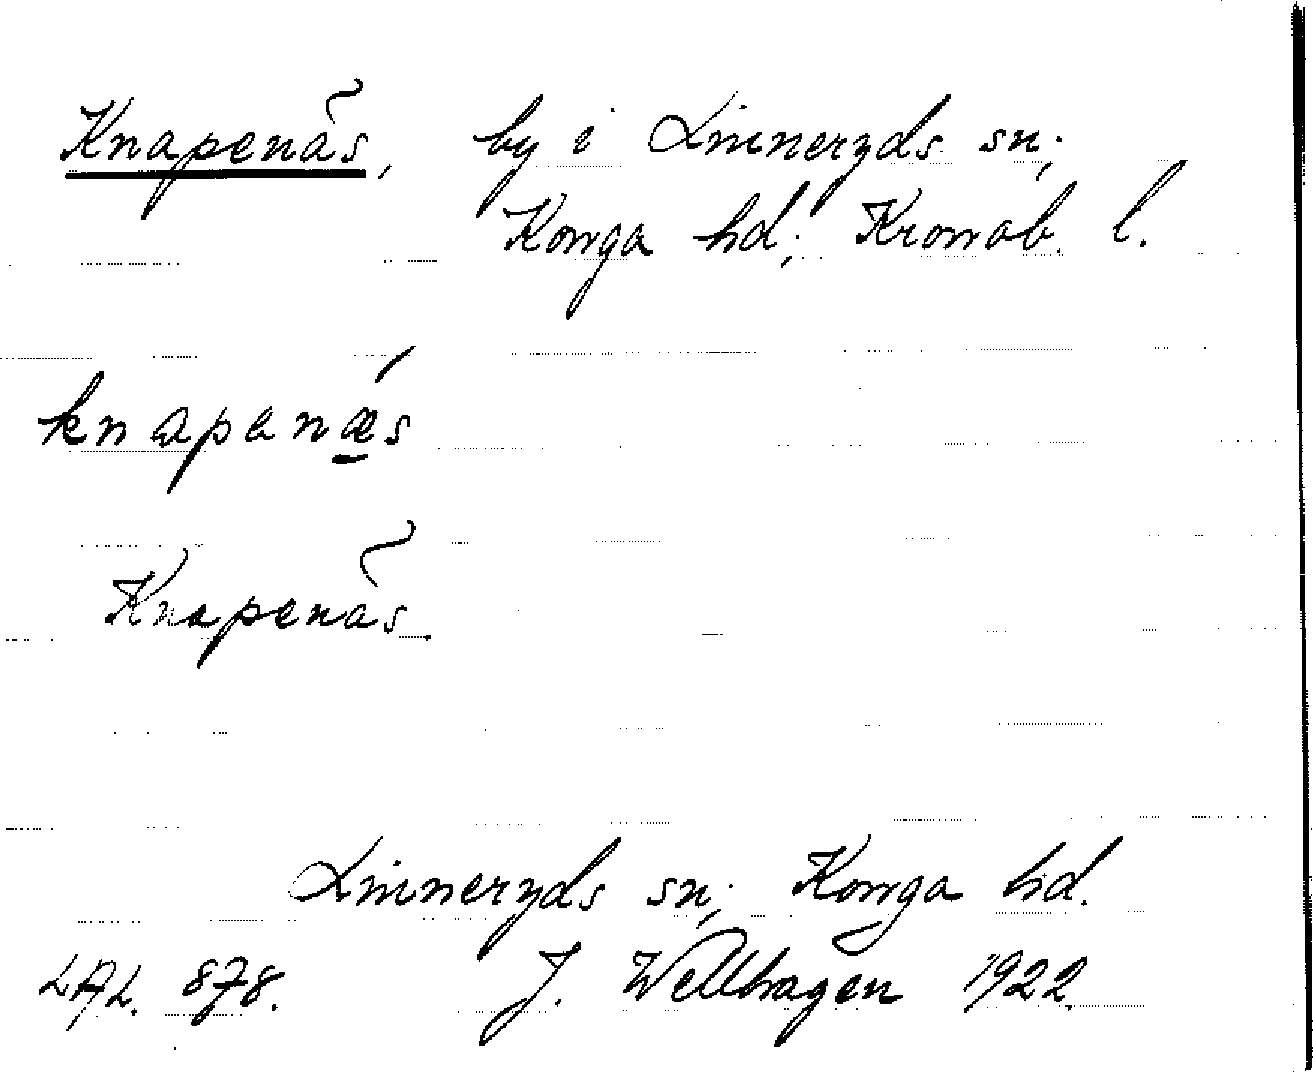 Knapenäs, by i Linneryds sn,
Konga hd, Kronob. l.
knapanǽs
Knapenäs.
Linneryds sn, Konga hd.
LAL. 878. J. Wellhagen 1922.